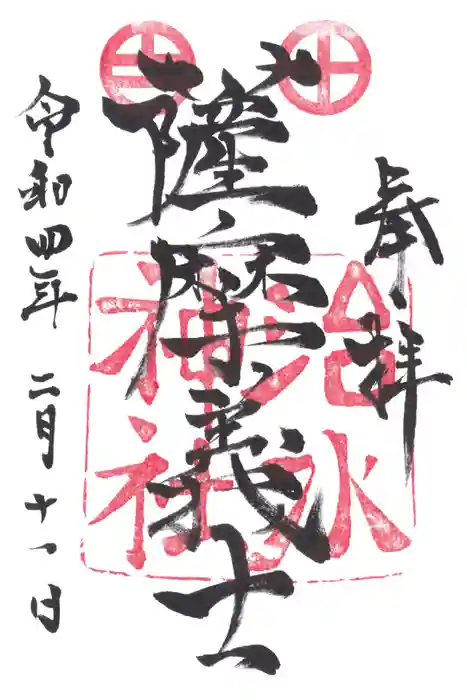 奉拝
薩摩義士
治水
神社
令和四年 二月十一日